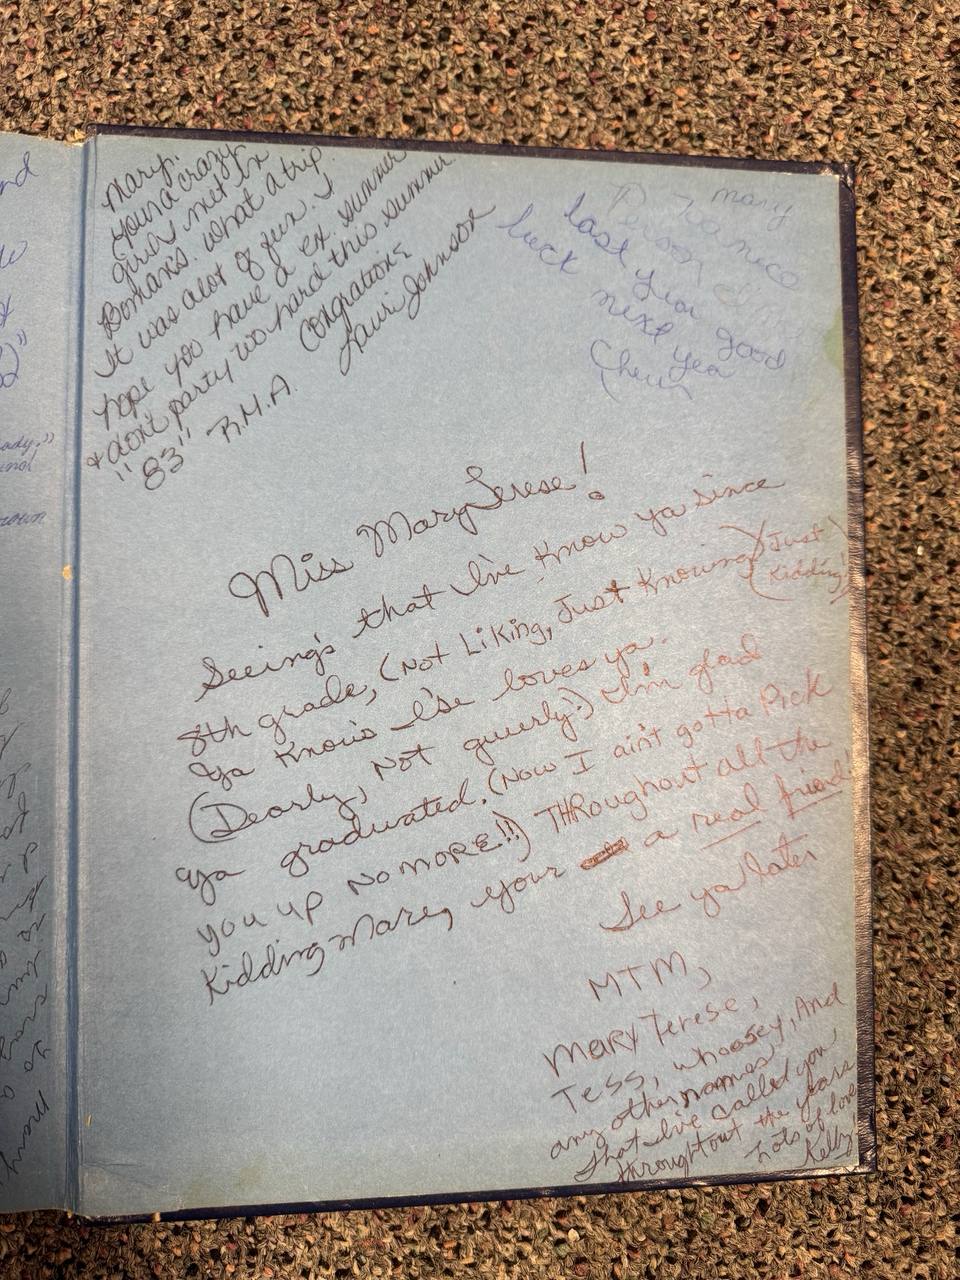 Mary.
Your a crazy
girl, met in
Bomans. What a trip.
It was alot of fun. I
hope you have a ex. summer
& don't party too hard this summer
Congrations
"83" R.M.A. Lauri Johnson
mary
Your a nice
Person
last year good
luck next year
Cheri
Miss MaryTerese!
Seeing's that I've know ya since
8th grade, (Not Liking, Just Knowing) (Just Kidding!)
Ya Know's I'se loves ya.
(Dearly, Not queerly!) I'm glad
ya graduated. (Now I ain't gotta Pick
you up No MORE!!) THRoughout all the
Kidding Mare, your a real friend
See ya later
MTM,
MARY Terese,
Tess, whoosey, And
any other names
that I've called you
throughtout the years
Lots of love
Kelly
ady,"
rown
many